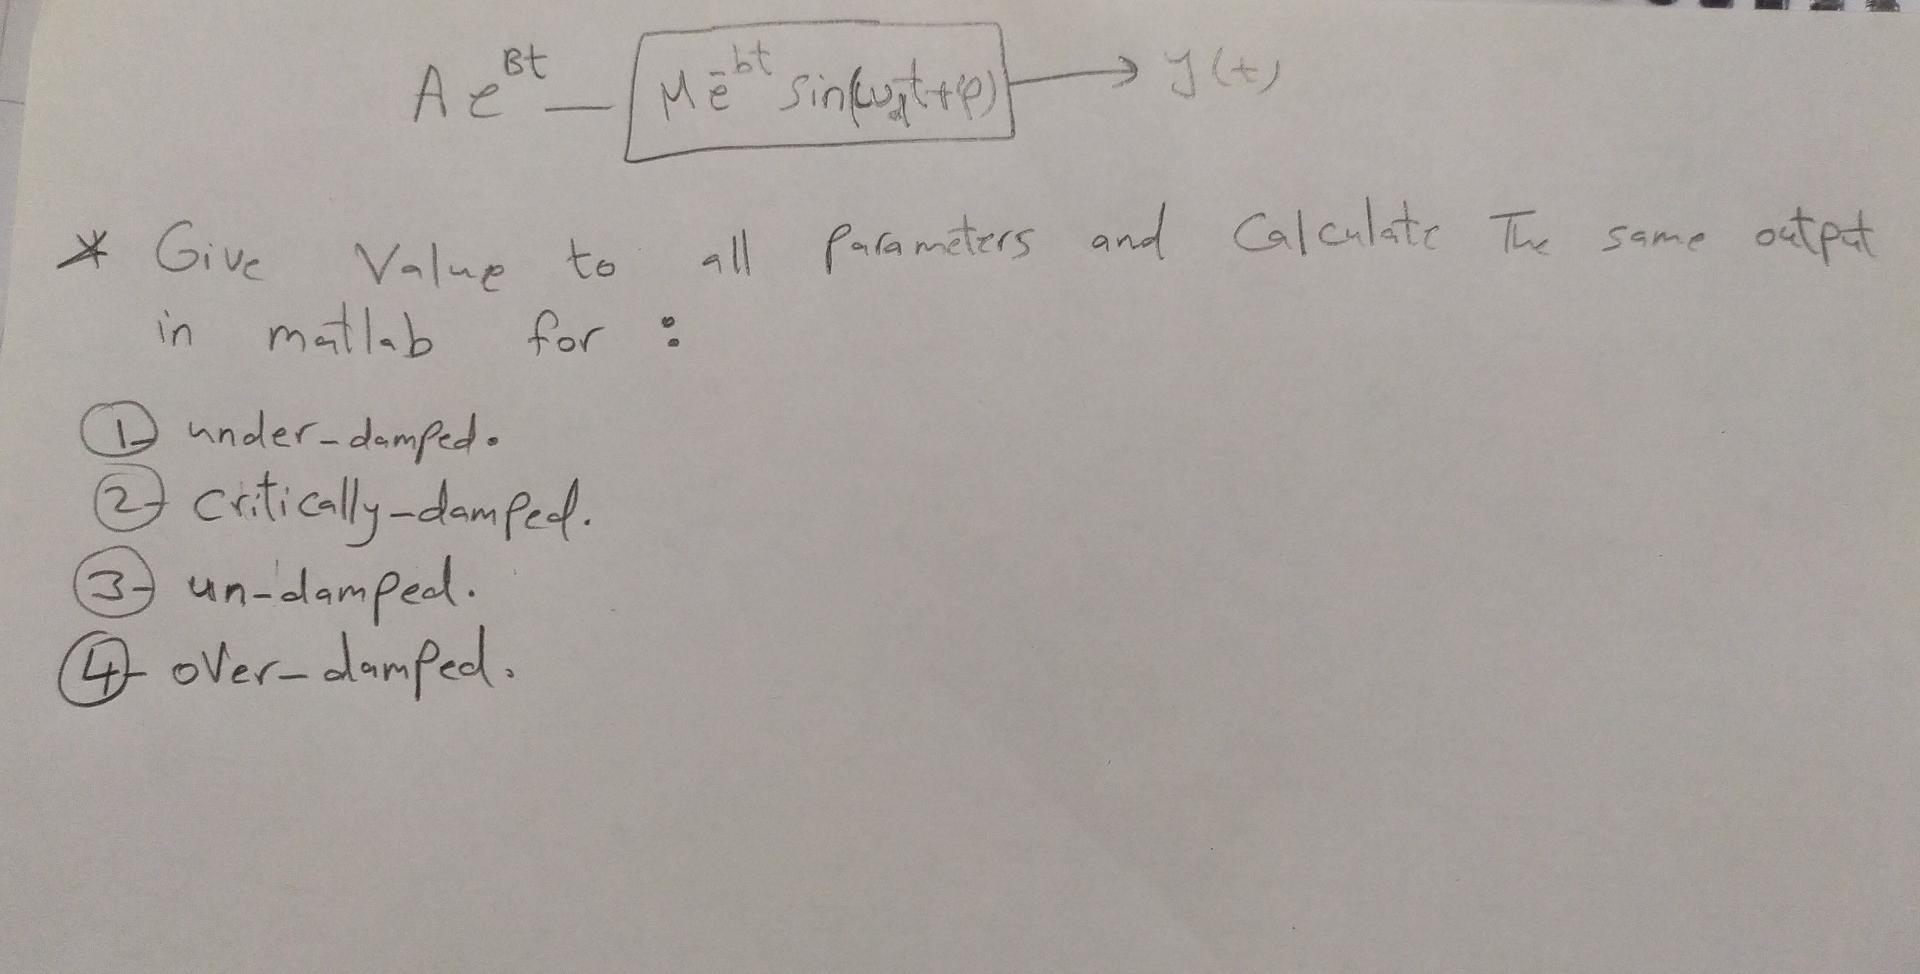 A e^Bt — M e^-bt sin(ω_d t+φ) → y(t)
* Give Value to all Parameters and Calculate The same output
in matlab for :
1- under-damped.
2- Critically-damped.
3- un-damped.
4- over-damped.